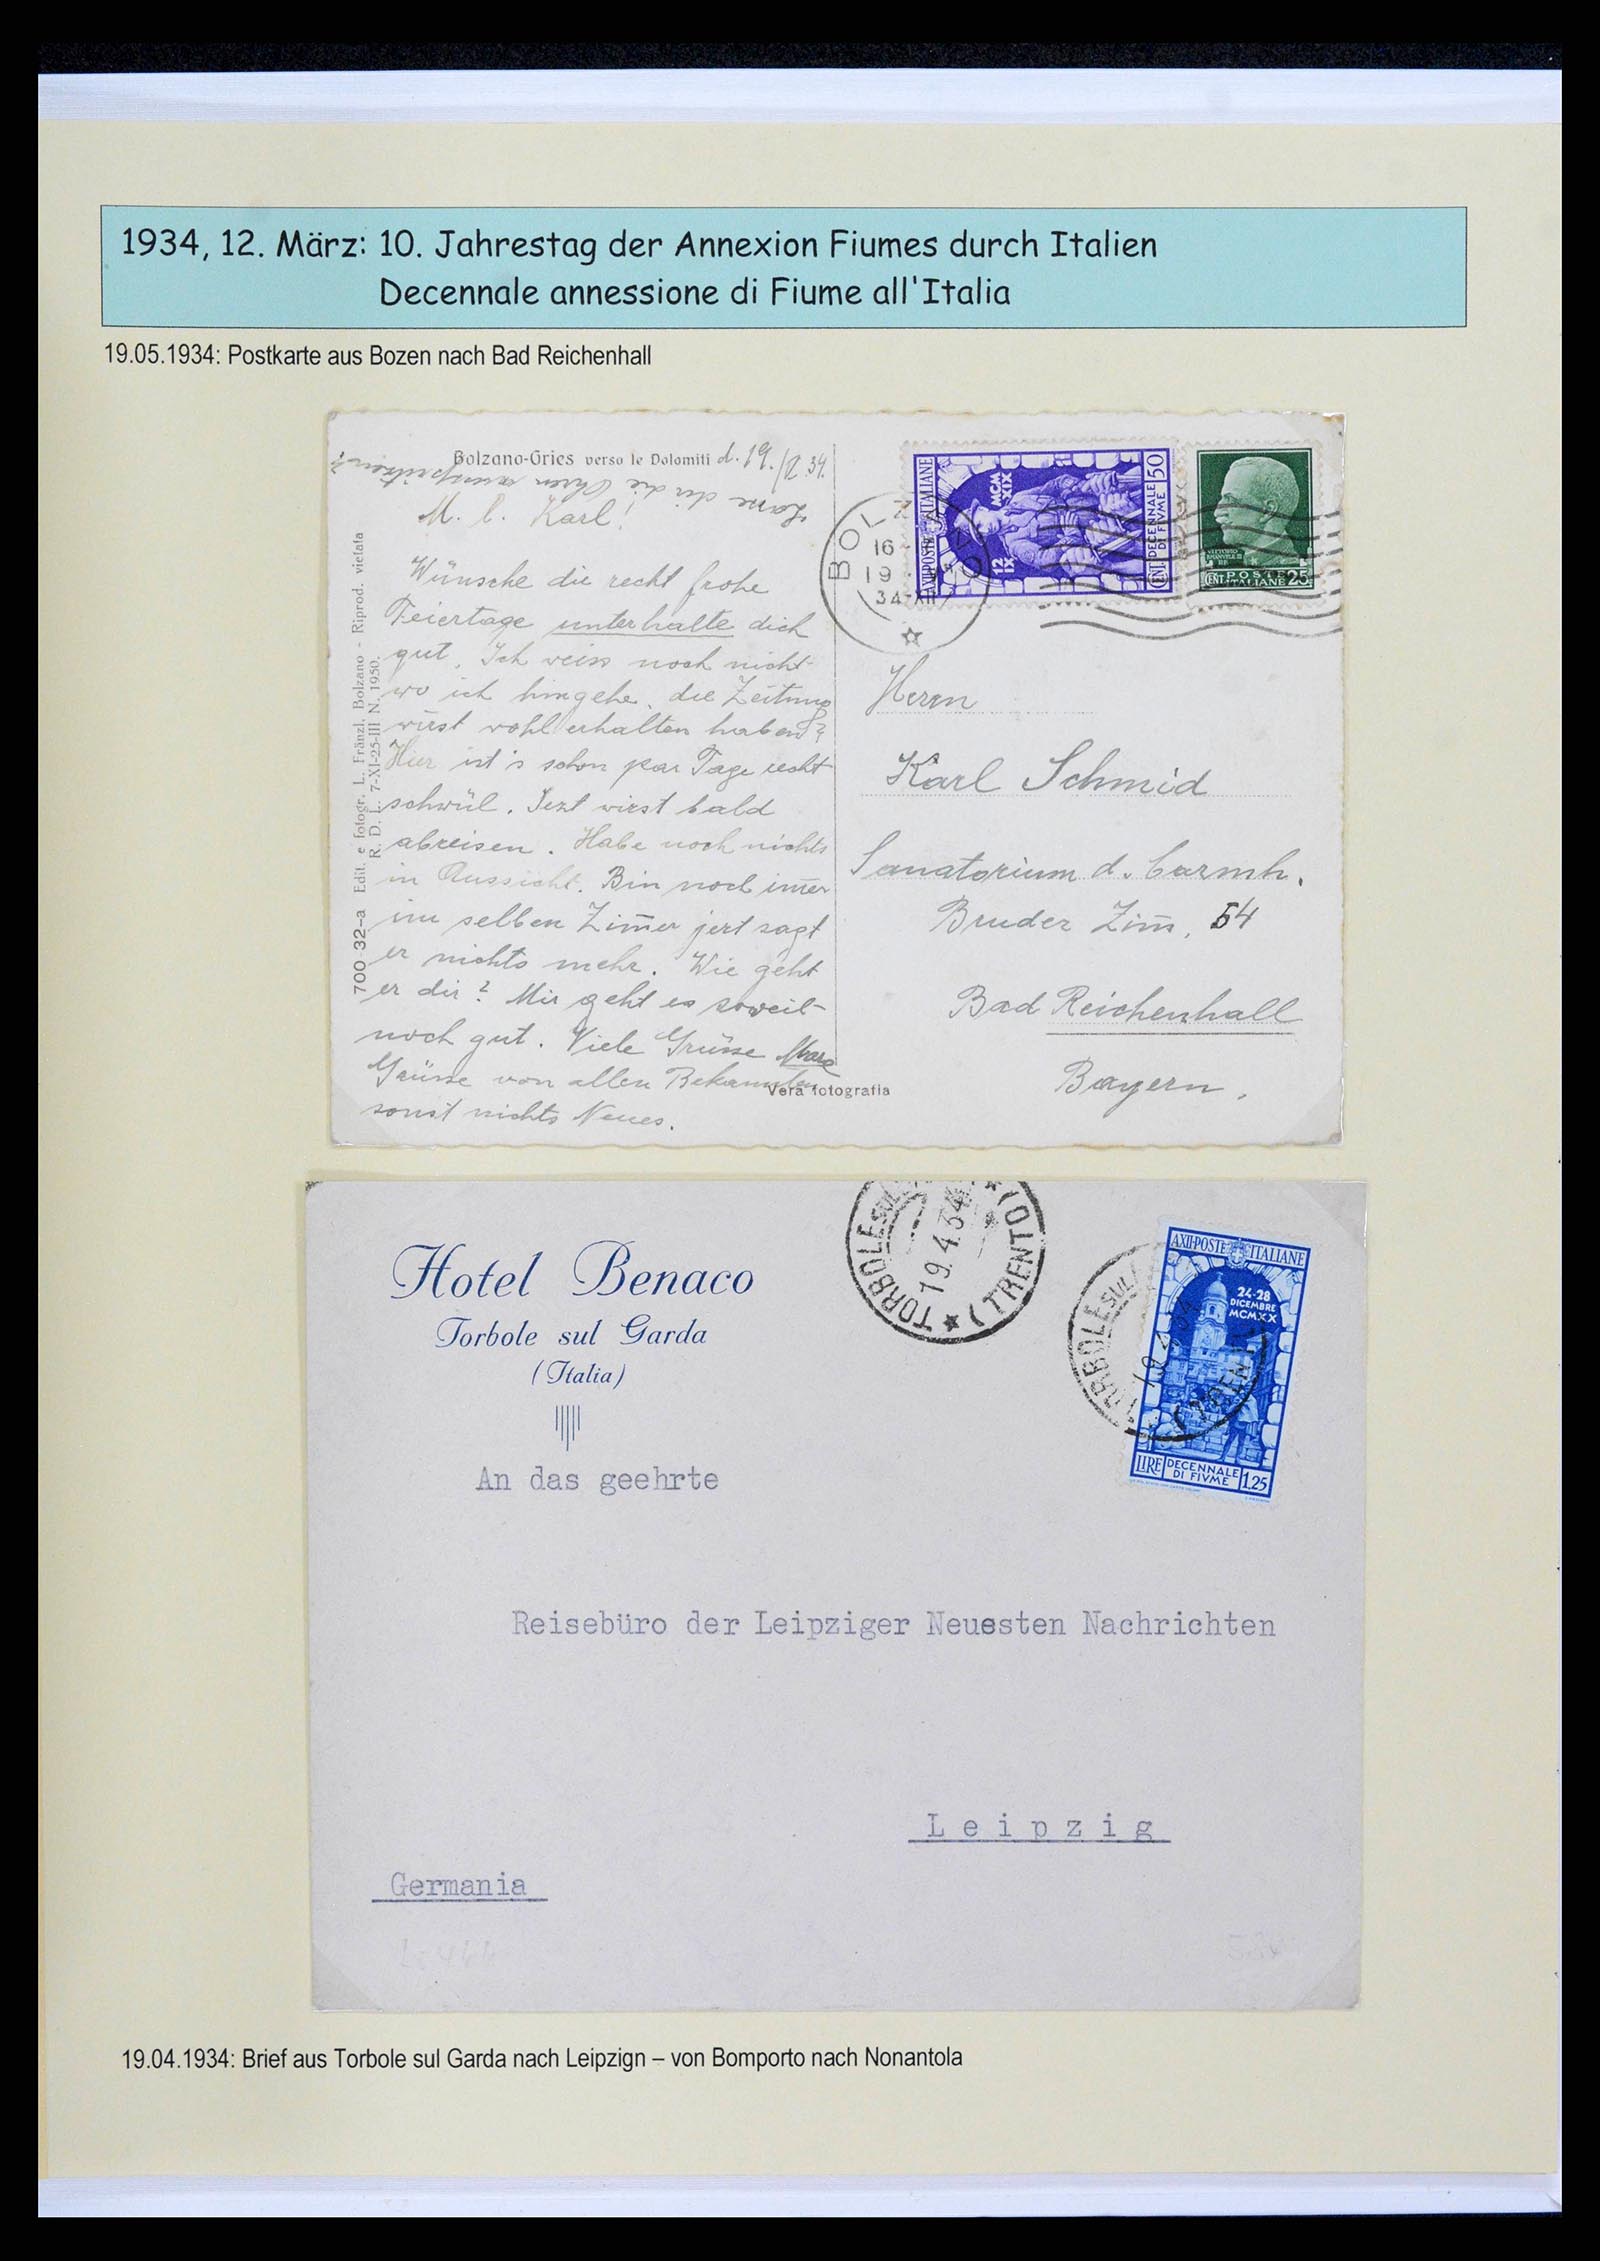 1934, 12. März: 10. Jahrestag der Annexion Fiumes durch Italien
Decennale annessione di Fiume all'Italia
19.05.1934: Postkarte aus Bozen nach Bad Reichenhall
Bolzano-Gries verso le Dolomiti d. 19./V. 34.
M. l. Karl!
Wünsche dir recht frohe
Feiertage unterhalte dich
gut. Ich weiss noch nicht
wo ich hingehe. die Zeitung
wirst wohl erhalten haben?
Hier ist's schon par Tage recht
schwül. Jezt wirst bald
abreisen. Habe noch nichts
in Aussicht. Bin noch im̄er
im selben Zim̄er jezt sagt
er nichts mehr. Wie geht
er dir? Mir geht es soweit
noch gut. Viele Grüsse
Grüsse von allen Bekannten
sonst nichts Neues.
700-32-a Edit. e fotogr. L. Fränzl. Bolzano - Riprod. vietata
R. D. L. 7-XI-25-III N. 1950.
Vera fotografia
BOLZANO
16
19
34 XII
AXII·POSTE ITALIANE
MCM XIX
12 IX
CENT. DECENNALE DI FIVME 50
VITTORIO EMANUELE III RE
CENT. POSTE ITALIANE 25
Herrn
Karl Schmid
Sanatorium d. barmh.
Bruder Zim̄. 54
Bad Reichenhall
Bayern.
Hotel Benaco
Torbole sul Garda
(Italia)
TORBOLE SUL
19.4.34
(TRENTO)
TORBOLE SUL
19.4.34
(TRENTO)
AXII·POSTE ITALIANE
24-28
DICEMBRE
MCMXX
LIRE DECENNALE DI FIVME 1.25
An das geehrte
Reisebüro der Leipziger Neuesten Nachrichten
Leipzig
Germania
19.04.1934: Brief aus Torbole sul Garda nach Leipzign – von Bomporto nach Nonantola